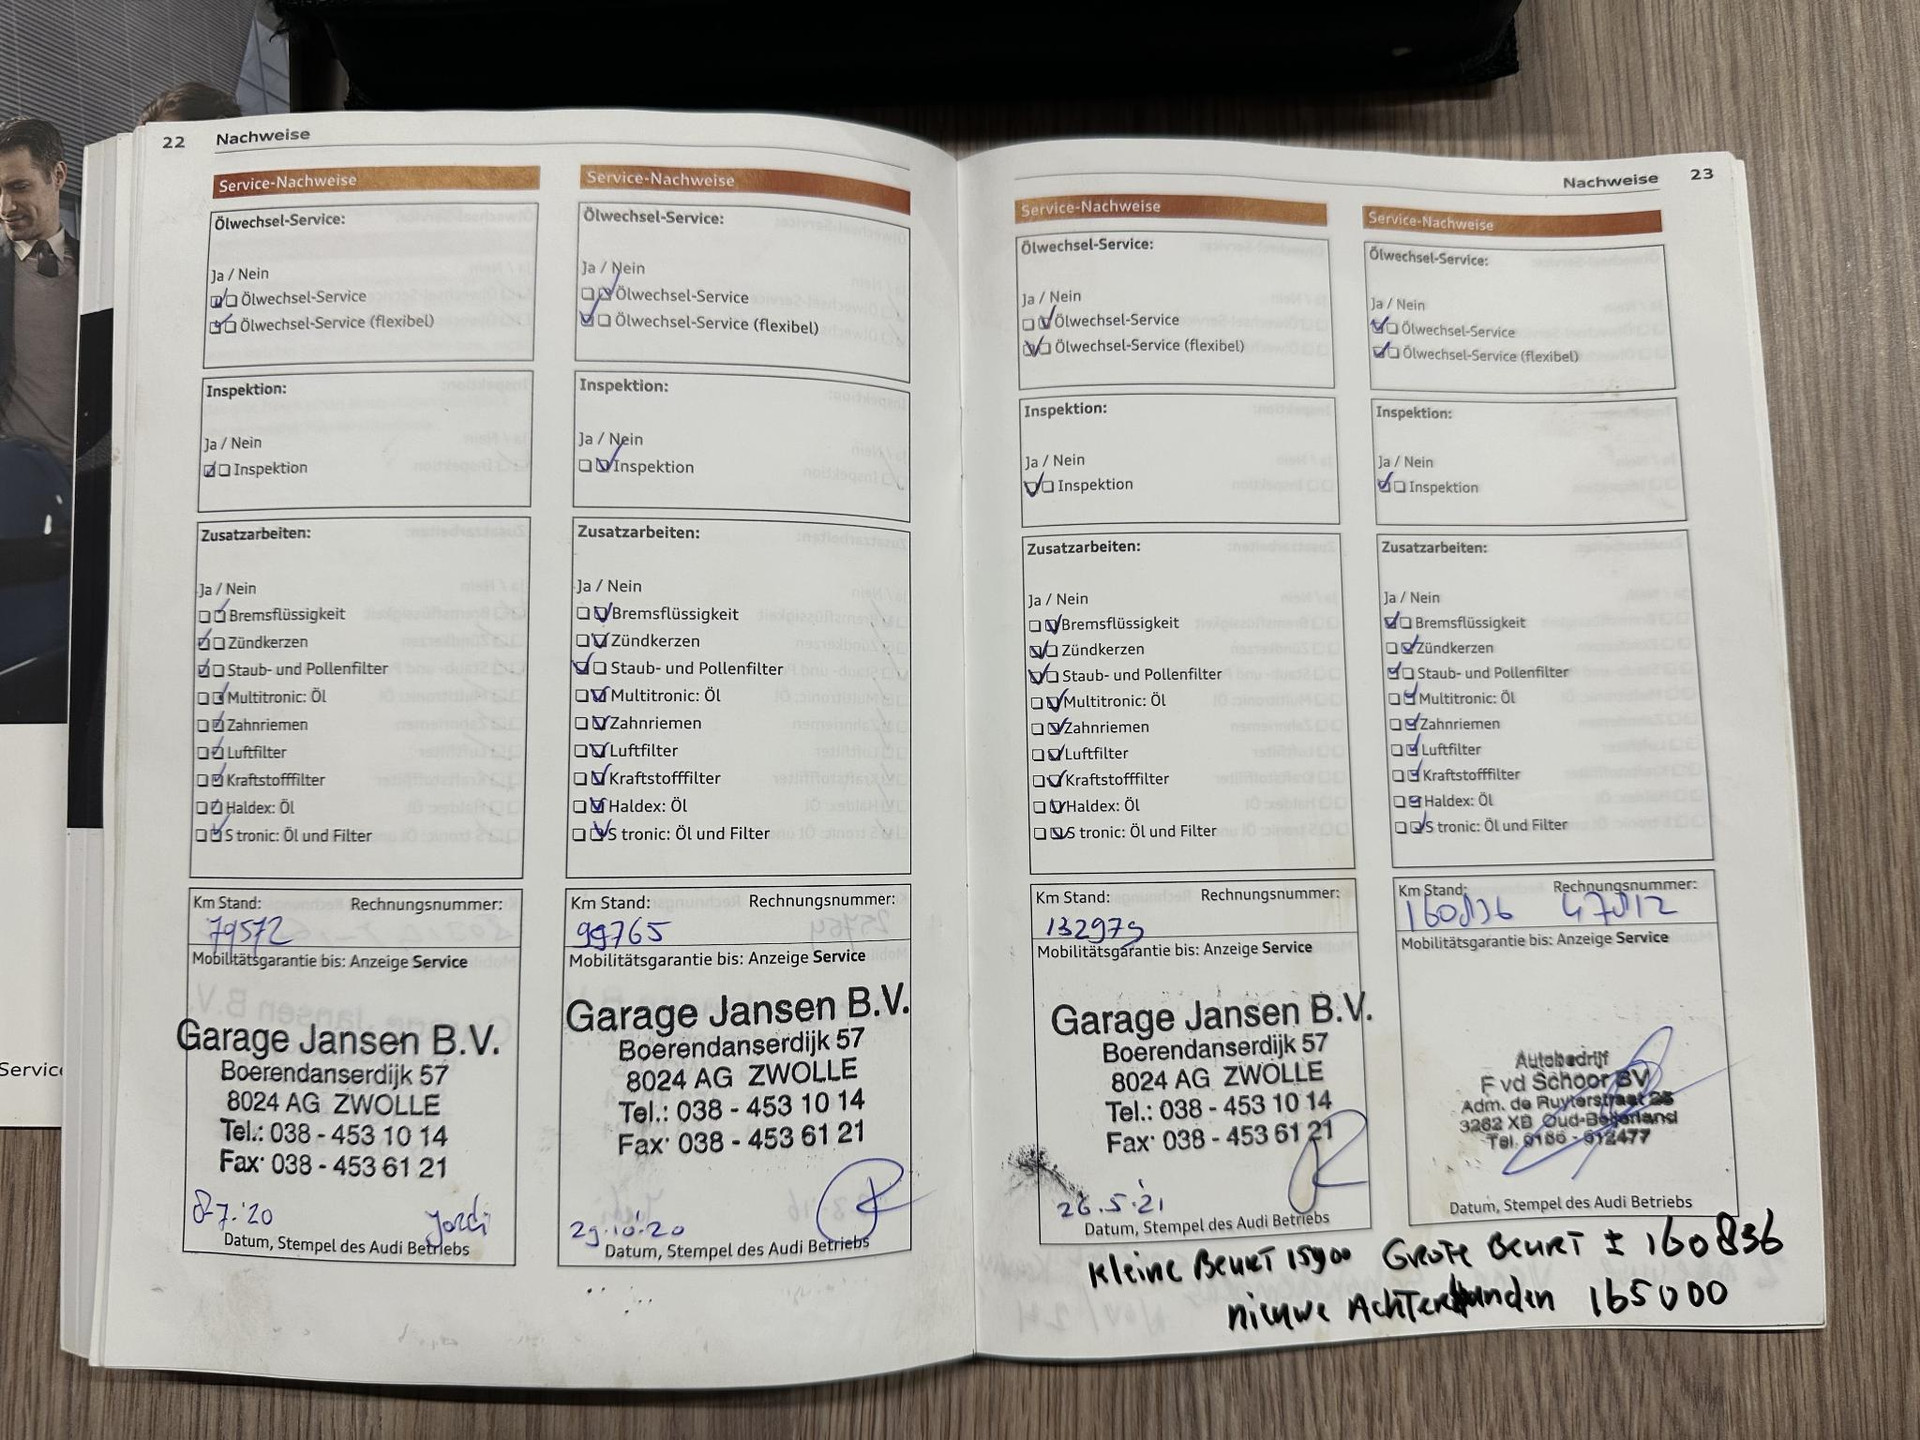 22 Nachweise
Service-Nachweise
Ölwechsel-Service:
Ja / Nein
Ölwechsel-Service
Ölwechsel-Service (flexibel)
Inspektion:
Ja / Nein
Inspektion
Zusatzarbeiten:
Ja / Nein
Bremsflüssigkeit
Zündkerzen
Staub- und Pollenfilter
Multitronic: Öl
Zahnriemen
Luftfilter
Kraftstofffilter
Haldex: Öl
S tronic: Öl und Filter
Km Stand: Rechnungsnummer:
79572
Mobilitätsgarantie bis: Anzeige Service
Garage Jansen B.V.
Boerendanserdijk 57
8024 AG ZWOLLE
Tel.: 038 - 453 10 14
Fax: 038 - 453 61 21
8-7-'20 Jordi
Datum, Stempel des Audi Betriebs
Service-Nachweise
Ölwechsel-Service:
Ja / Nein
Ölwechsel-Service
Ölwechsel-Service (flexibel)
Inspektion:
Ja / Nein
Inspektion
Zusatzarbeiten:
Ja / Nein
Bremsflüssigkeit
Zündkerzen
Staub- und Pollenfilter
Multitronic: Öl
Zahnriemen
Luftfilter
Kraftstofffilter
Haldex: Öl
S tronic: Öl und Filter
Km Stand: Rechnungsnummer:
99765
Mobilitätsgarantie bis: Anzeige Service
Garage Jansen B.V.
Boerendanserdijk 57
8024 AG ZWOLLE
Tel.: 038 - 453 10 14
Fax: 038 - 453 61 21
29.10.'20
Datum, Stempel des Audi Betriebs
Nachweise 23
Service-Nachweise
Ölwechsel-Service:
Ja / Nein
Ölwechsel-Service
Ölwechsel-Service (flexibel)
Inspektion:
Ja / Nein
Inspektion
Zusatzarbeiten:
Ja / Nein
Bremsflüssigkeit
Zündkerzen
Staub- und Pollenfilter
Multitronic: Öl
Zahnriemen
Luftfilter
Kraftstofffilter
Haldex: Öl
S tronic: Öl und Filter
Km Stand: Rechnungsnummer:
132973
Mobilitätsgarantie bis: Anzeige Service
Garage Jansen B.V.
Boerendanserdijk 57
8024 AG ZWOLLE
Tel.: 038 - 453 10 14
Fax: 038 - 453 61 21
26.5.'21
Datum, Stempel des Audi Betriebs
Service-Nachweise
Ölwechsel-Service:
Ja / Nein
Ölwechsel-Service
Ölwechsel-Service (flexibel)
Inspektion:
Ja / Nein
Inspektion
Zusatzarbeiten:
Ja / Nein
Bremsflüssigkeit
Zündkerzen
Staub- und Pollenfilter
Multitronic: Öl
Zahnriemen
Luftfilter
Kraftstofffilter
Haldex: Öl
S tronic: Öl und Filter
Km Stand: Rechnungsnummer:
160836 47812
Mobilitätsgarantie bis: Anzeige Service
Autobedrijf
F vd Schoor BV
Adm. de Ruyterstraat 25
3262 XB Oud-Beijerland
Tel. 0186 - 612477
Datum, Stempel des Audi Betriebs
Kleine Beurt 15900 Grote Beurt ± 160836
nieuwe Achterbanden 165000
Service